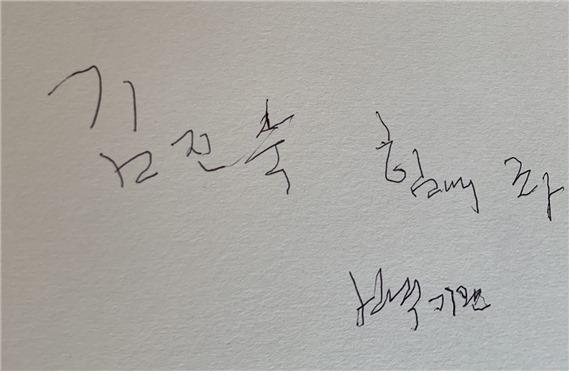 김진숙 힘내라
백기완